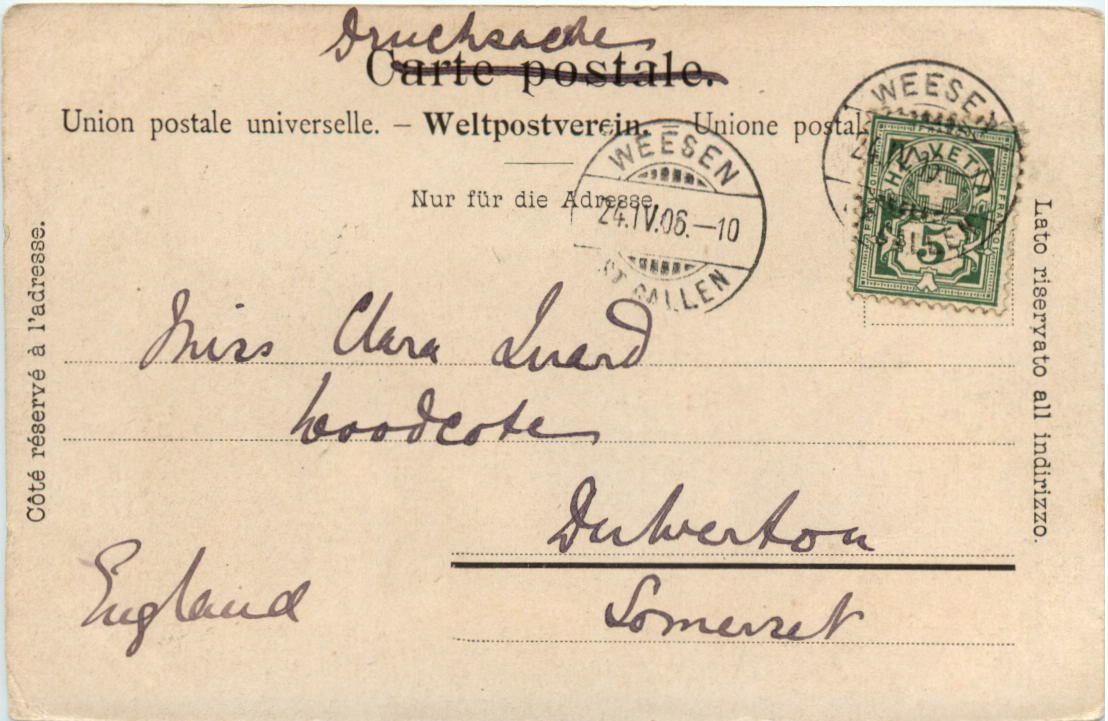 Drucksache
Carte postale.
Union postale universelle. – Weltpostverein. – Unione postal
Nur für die Adresse.
WEESEN
24.IV.06.–10
ST. GALLEN
WEESEN
HELVETIA
FRANCO
FRANCO
5
Côté réservé à l'adresse.
Lato riservato all indirizzo.
Miss Clara Luard
Woodcote
Dulverton
Somerset
England